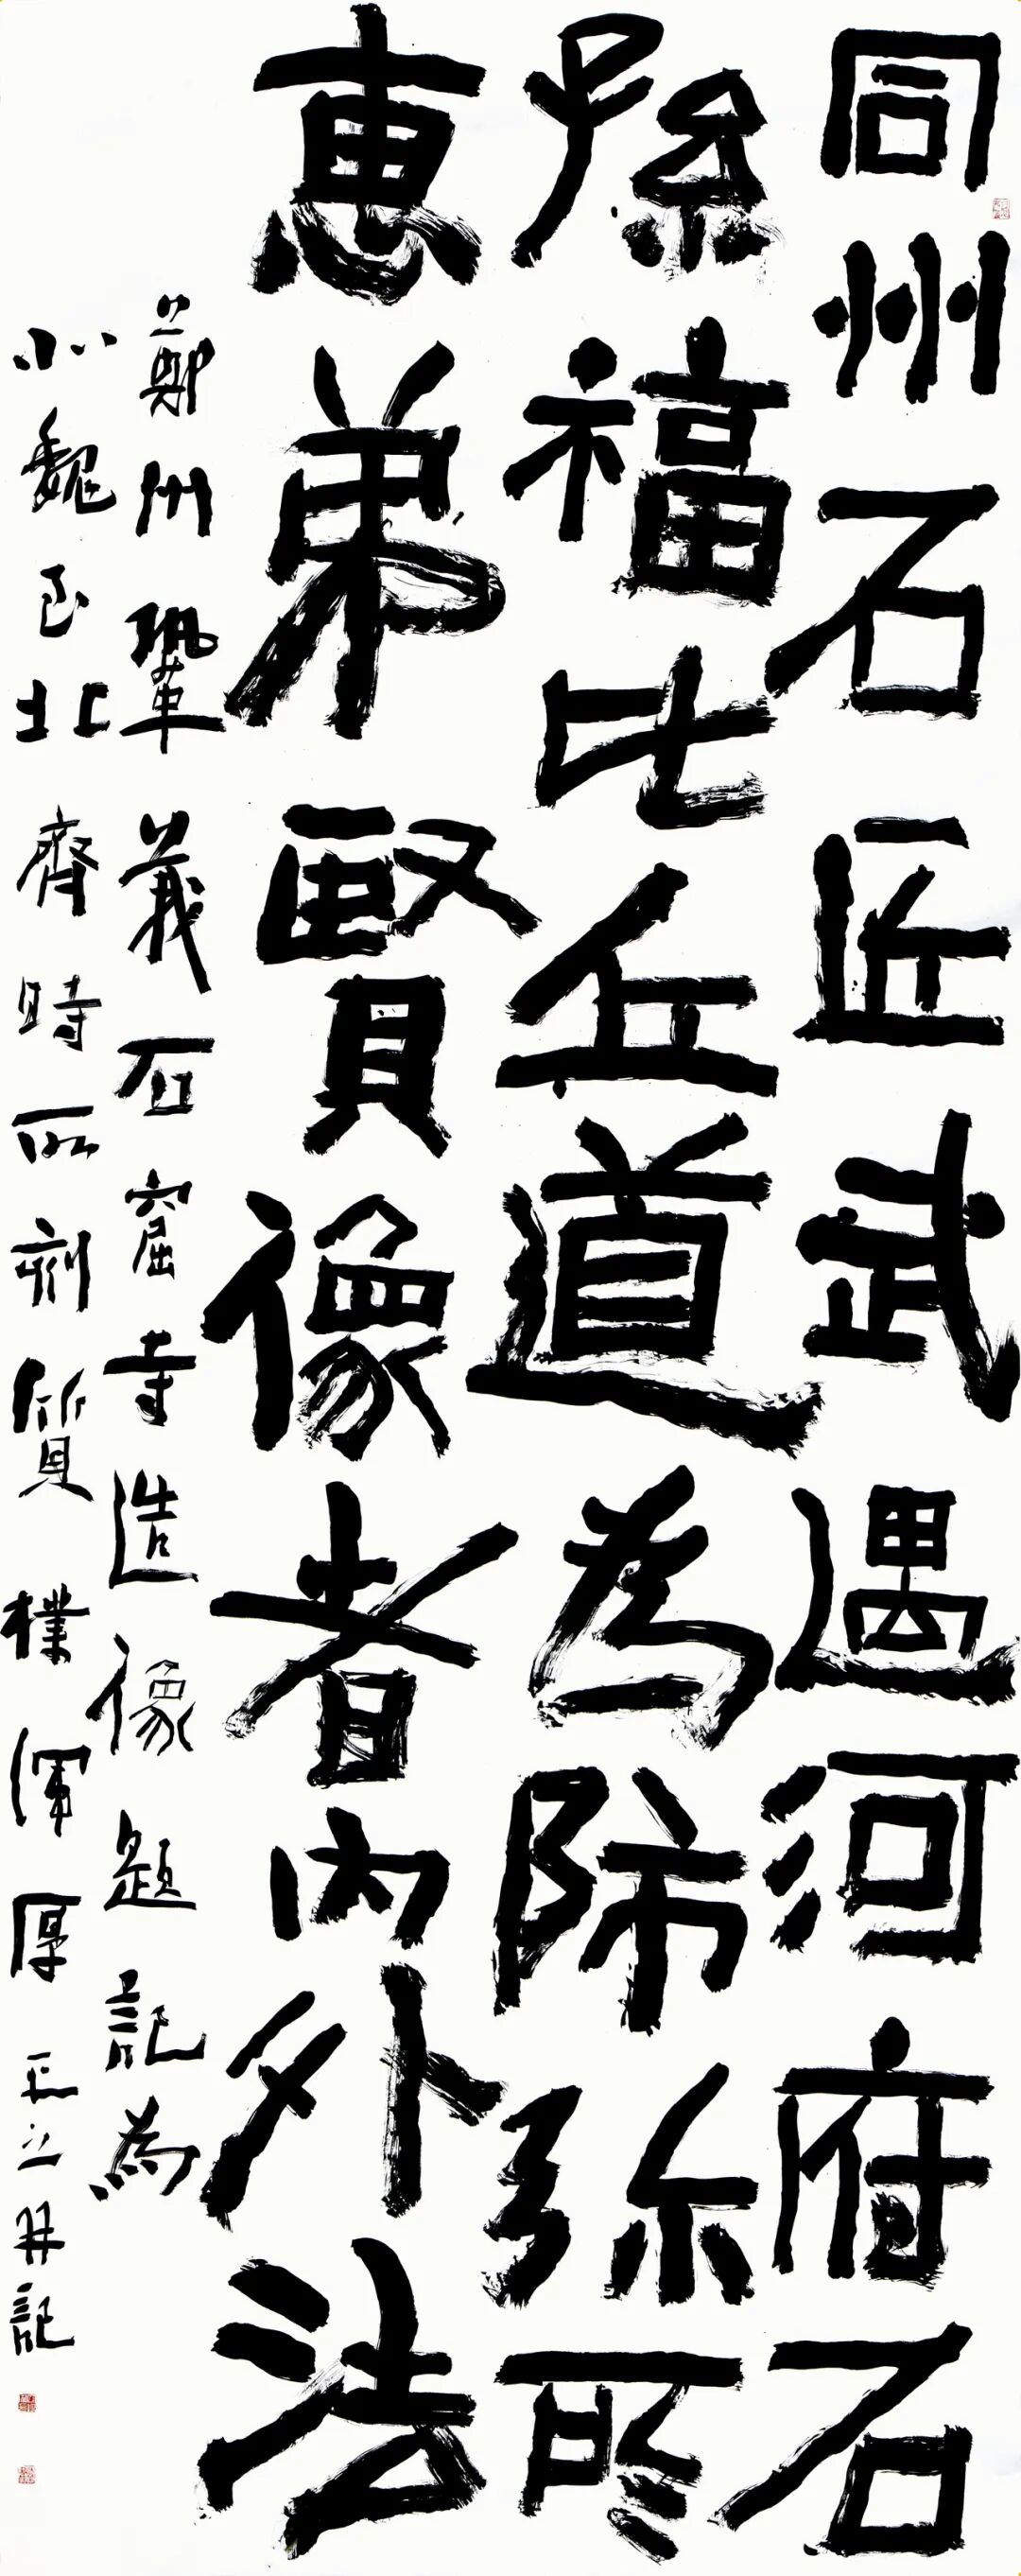 同州石匠武遇河府石
孫福比丘道為師弥所
惠弟賢像者內外法
鄭州鞏義石窟寺造像題記為
北魏至北齊時所刻質樸渾厚 記